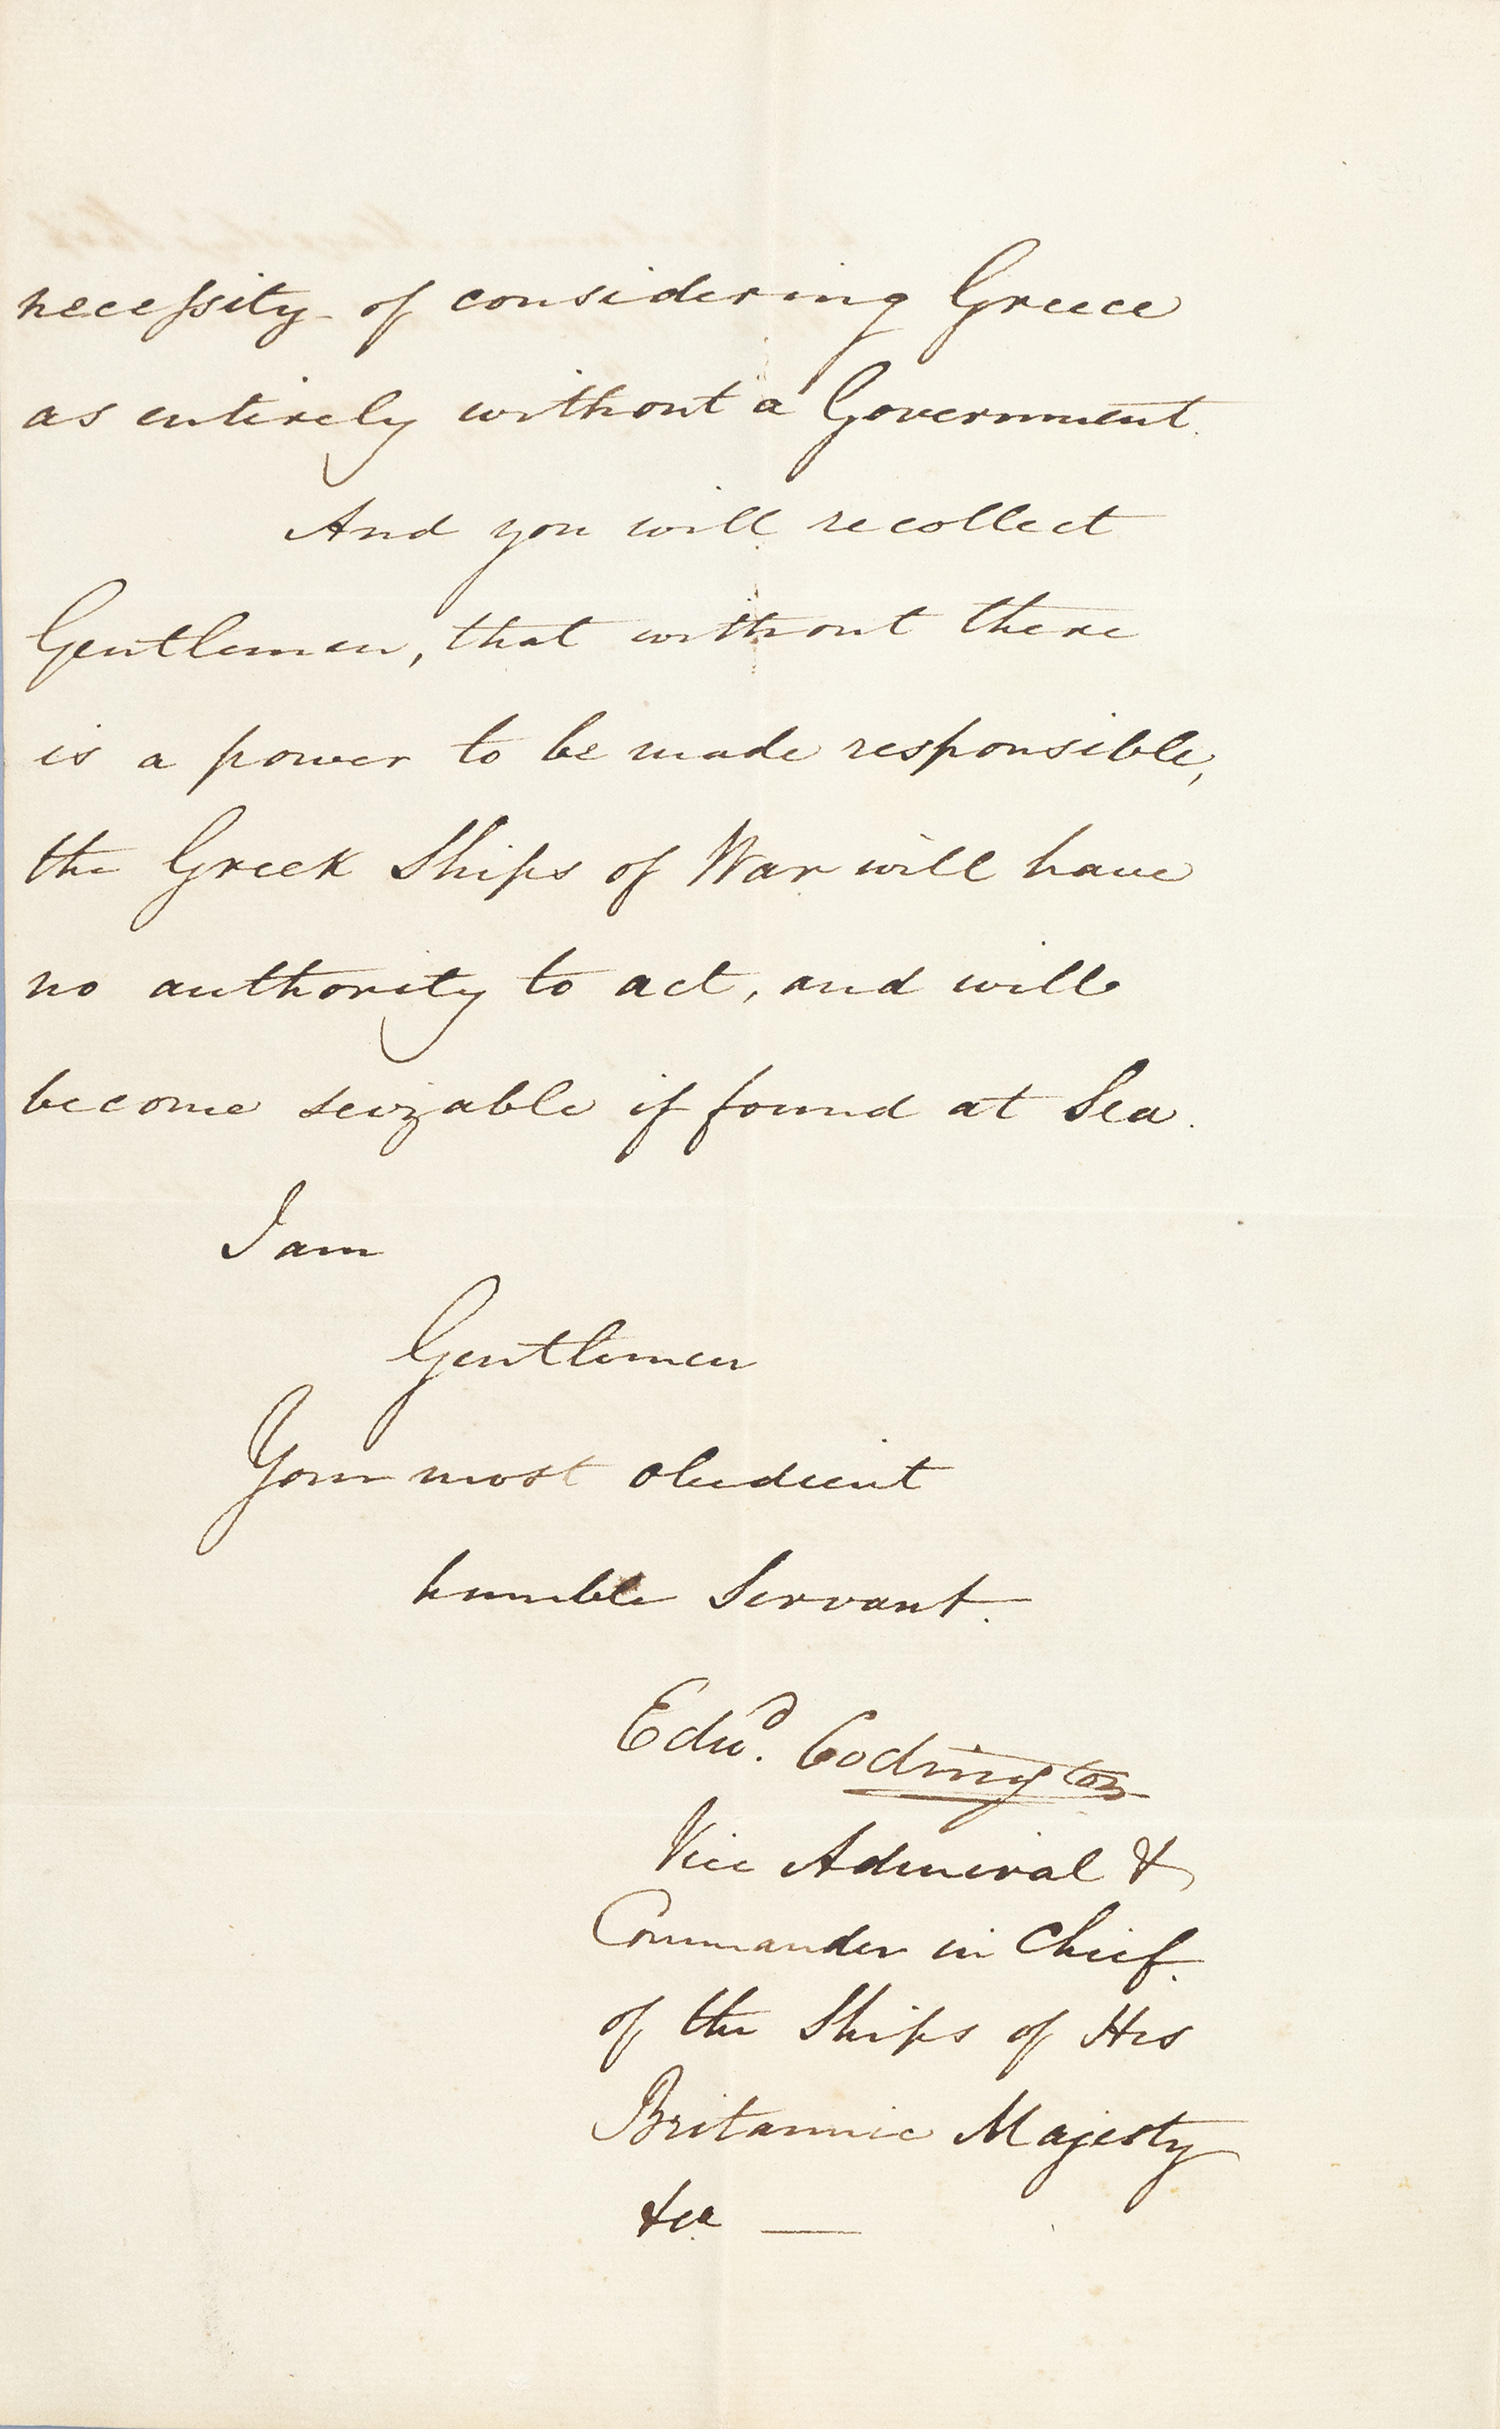 necessity of considering Greece
as entirely without a Government.
And you will recollect
Gentlemen, that without there
is a power to be made responsible,
the Greek Ships of War will have
no authority to act, and will
become seizable if found at Sea.
I am
Gentlemen
Your most obedient
humble Servant.
Edwd. Codrington
Vice Admiral &
Commander in Chief.
of the Ships of His
Britannic Majesty
&ca —